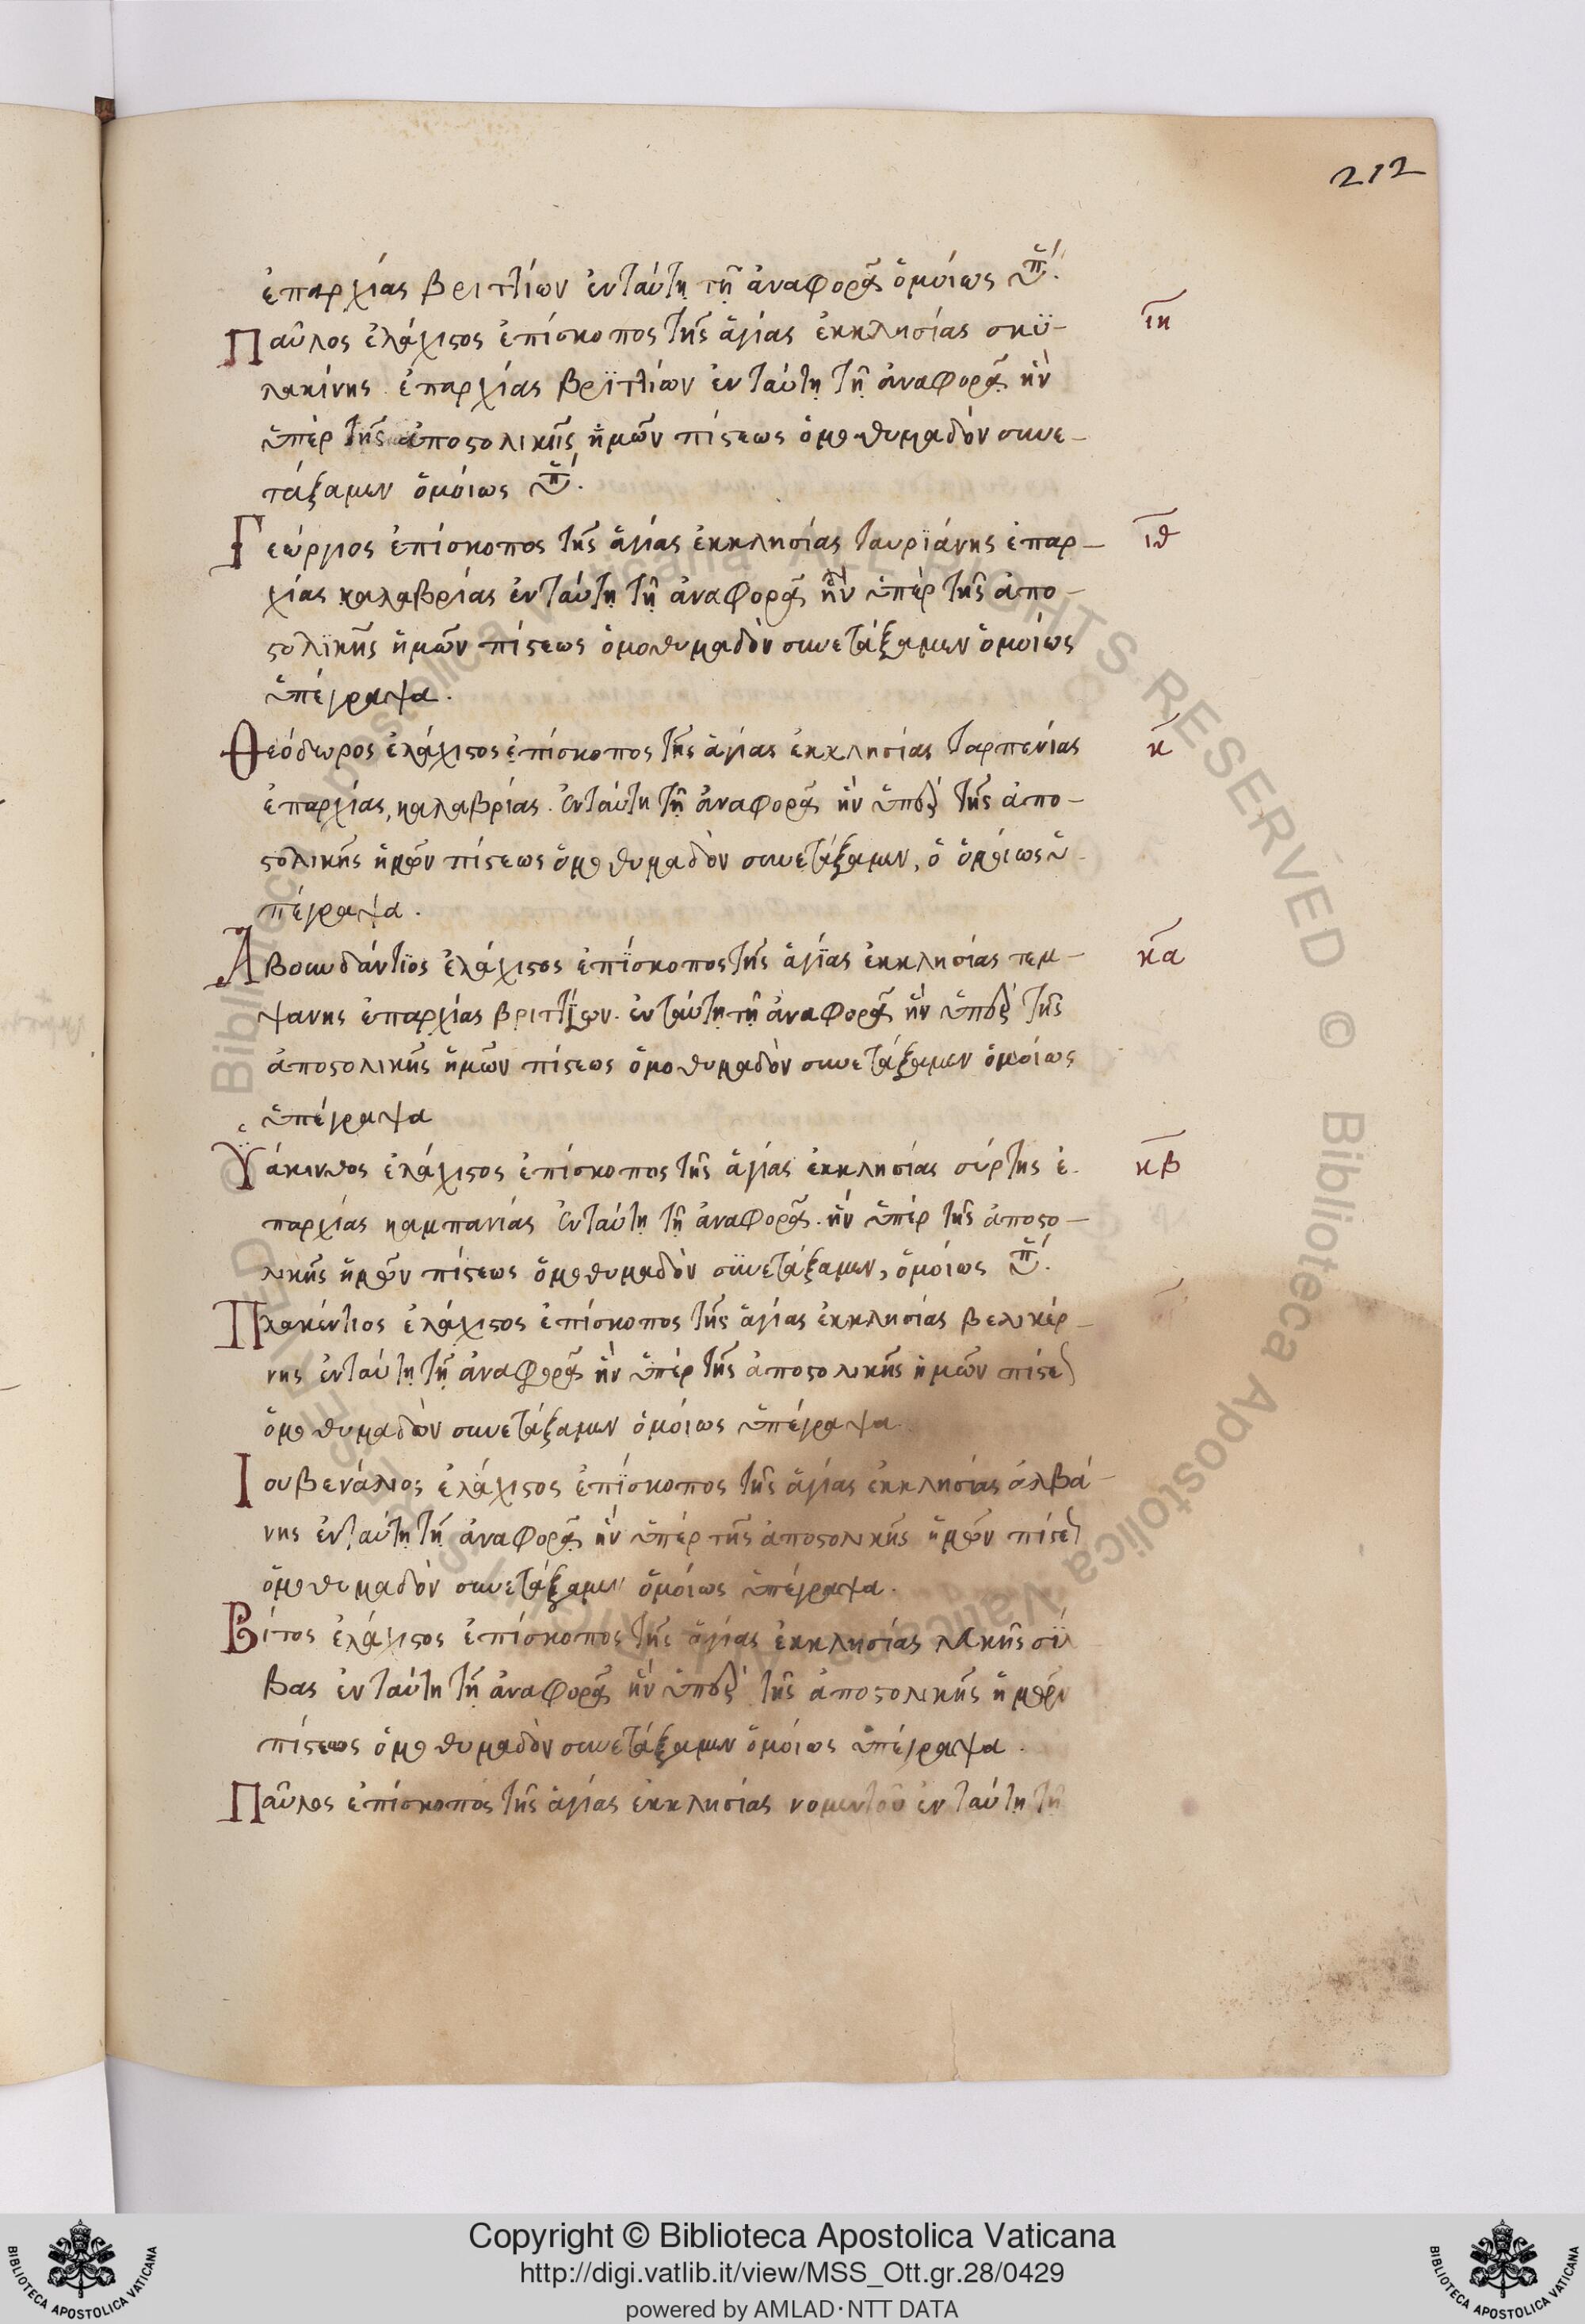 212
ἐπαρχίας βριττίων ἐν ταύτη τῆ ἀναφορᾶ ὁμοίως ὑπ́.
Παῦλος ἐλάχιστος ἐπίσκοπος τῆς ἁγίας ἐκκλησίας σκϋ- ιη
λακίνης ἐπαρχίας βρϊττίων ἐν ταύτη τῆ ἀναφορᾶ ἣν
ὑπὲρ τῆς ἀποστολικῆς ἡμῶν πίστεως ὁμοθυμαδὸν συνε-
τάξαμεν ὁμοίως ὑπ́.
Γεώργιος ἐπίσκοπος τῆς ἁγίας ἐκκλησίας ταυρϊάνης ἐπαρ- ιθ
χίας καλαβρίας ἐν ταύτη τῆ ἀναφορᾶ ἣν ὑπὲρ τῆς ἀπο-
στολϊκῆς ἡμῶν πίστεως ὁμοθυμαδὸν συνετάξαμεν ὁμοίως
ὑπέγραψα.
Θεόδωρος ἐλάχιστος ἐπίσκοπος τῆς ἁγίας ἐκκλησίας ταρπενίας κ
ἐπαρχίας, καλαβρίας. ἐν ταύτη τῆ ἀναφορᾶ ἣν ὑπὲρ τῆς ἀπο-
στολικῆς ἡμῶν πίστεως ὁμοθυμαδὸν συνετάξαμεν, ὁ ὁμοίως ὑ-
πέγραψα.
Αβουνδάντϊος ἐλάχιστος ἐπϊσκοπος τῆς ἁγΐας ἐκκλησίας τεμ- κα
ψανης ἐπαρχίας βριττΐων. ἐν ταύτη τῆ ἀναφορᾶ ἣν ὑπὲρ τῆς
ἀποστολικῆς ἡμῶν πίστεως ὁμοθυμαδὸν συνετάξαμεν ὁμοίως
ὑπέγραψα
Υάκινθος ἐλάχιστος ἐπίσκοπος τῆς ἁγίας ἐκκλησίας σύρτης ἐ- κβ
παρχίας καμπανίας ἐν ταύτη τῆ ἀναφορᾶ. ἣν ὑπὲρ τῆς ἀποστο-
λικῆς ἡμῶν πίστεως ὁμοθυμαδὸν σϋνετάξαμεν, ὁμοίως ὑπ́.
Πλακέντιος ἐλάχιστος ἐπίσκοπος τῆς ἁγίας ἐκκλησίας βελικέρ-
νης ἐν ταύτη τῆ ἀναφορᾶ ἣν ὑπὲρ τῆς ἀποστολικῆς ἡμῶν πίστε
ὁμοθυμαδὸν συνετάξαμεν ὁμοίως ὑπέγραψα
Ιουβενάλιος ἐλάχιστος ἐπΐσκοπος τῆς ἁγίας ἐκκλησίας ἀλβά-
νης ἐν ταύτη τῆ ἀναφορᾶ ἣν ὑπὲρ τῆς ἀποστολικῆς ἡμῶν πίστε
ὁμοθυμαδὸν συνετάξαμεν ὁμοίως ὑπέγραψα.
Βίτος ἐλάχιστος ἐπίσκοπος τῆς ἁγίας ἐκκλησίας λικῆς σϊλ
βας ἐν ταύτη τῆ ἀναφορᾶ ἣν ὑπὲρ τῆς ἀποστολικῆς ἡμῶν
πίστεως ὁμοθυμαδὸν συνετάξαμεν ὁμοίως ὑπέγραψα.
Παῦλος ἐπίσκοπος τῆς ἁγίας ἐκκλησίας νομεντοῦ ἐν ταύτη τῆ
Copyright © Biblioteca Apostolica Vaticana
http://digi.vatlib.it/view/MSS_Ott.gr.28/0429
powered by AMLAD·NTT DATA